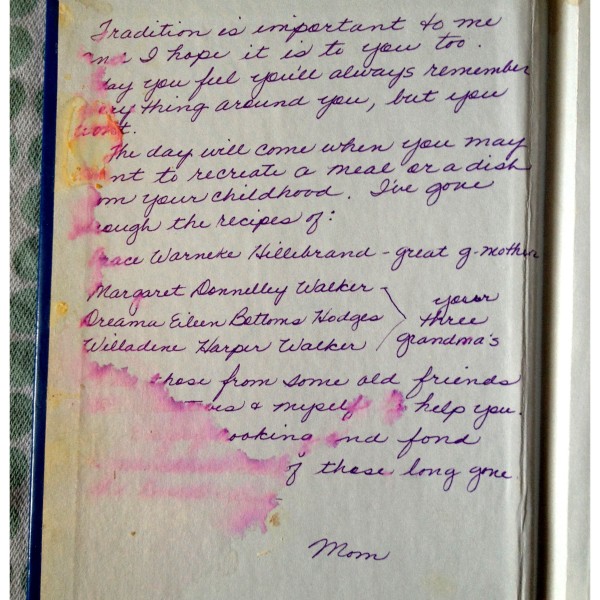 Tradition is important to me
I hope it is to you too.
you feel you'll always remember
thing around you, but you
The day will come when you may
to recreate a meal or a dish
your childhood. I've gone
the recipes of:
Warneke Hillebrand - great g-mother
Margaret Donnelley Walker
Dreama Eileen Bottoms Hodges
Willadine Harper Walker
your
three
grandma's
those from some old friends
& myself help you.
fond
of those long gone.
Mom